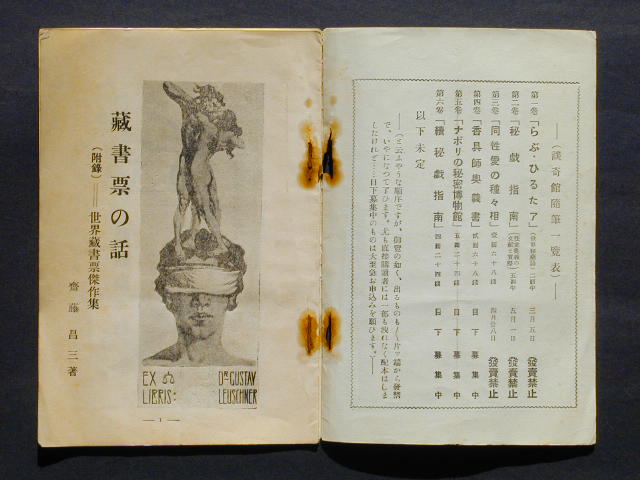 ―(談奇館隨筆一覽表)―
第一卷「らぶ・ひるたア」 三月五日 發賣禁止
第二卷「秘戯指南」 五月一日 發賣禁止
第三卷「同性愛の種々相」 壹圓六十八錢 四月廿八日 發賣禁止
第四卷「香具師奧義書」 貳圓六十八錢 目下募集中
第五卷「ナポリの秘密博物館」 五圓二十四錢 目下募集中
第六卷「續秘戯指南」 四圓二十四錢 目下募集中
以下未定
―(と云ふやうな順序ですが、御覽の如く、出るものも〱片ッ端から發禁
で、いやになつて了ひます。尤も直接購讀者には一部も洩れなく配本はしま
したけれど…目下募集中のものは大至急お申込みを願ひます。)―
藏書票の話
(附錄)――世界藏書票傑作集
齋藤昌三著
EX LIBRIS:
DR GUSTAV LEUSCHNER
― 1 ―